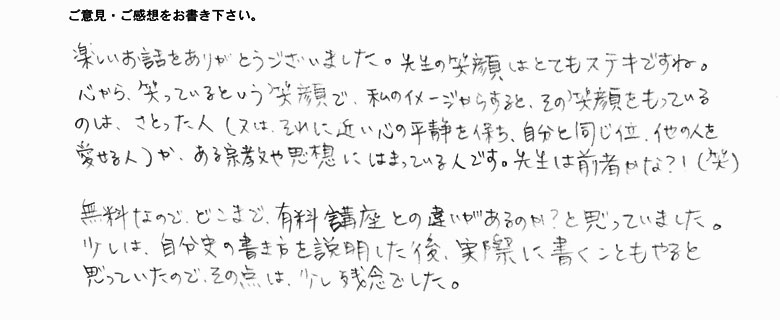 ご意見・ご感想をお書き下さい。
楽しいお話をありがとうございました。先生の笑顔はとてもステキですね。
心から、笑っているという笑顔で、私のイメージからすると、その笑顔をもっている
のは、さとった人(又は、それに近い心の平静を保ち、自分と同じ位、他の人を
愛せる人)か、ある宗教や思想にはまっている人です。先生は前者かな?!(笑)
無料なので、どこまで、有料講座との違いがあるのか?と思っていました。
少しは、自分史の書き方を説明した後、実際に書くこともやると
思っていたので、その点は、少し残念でした。